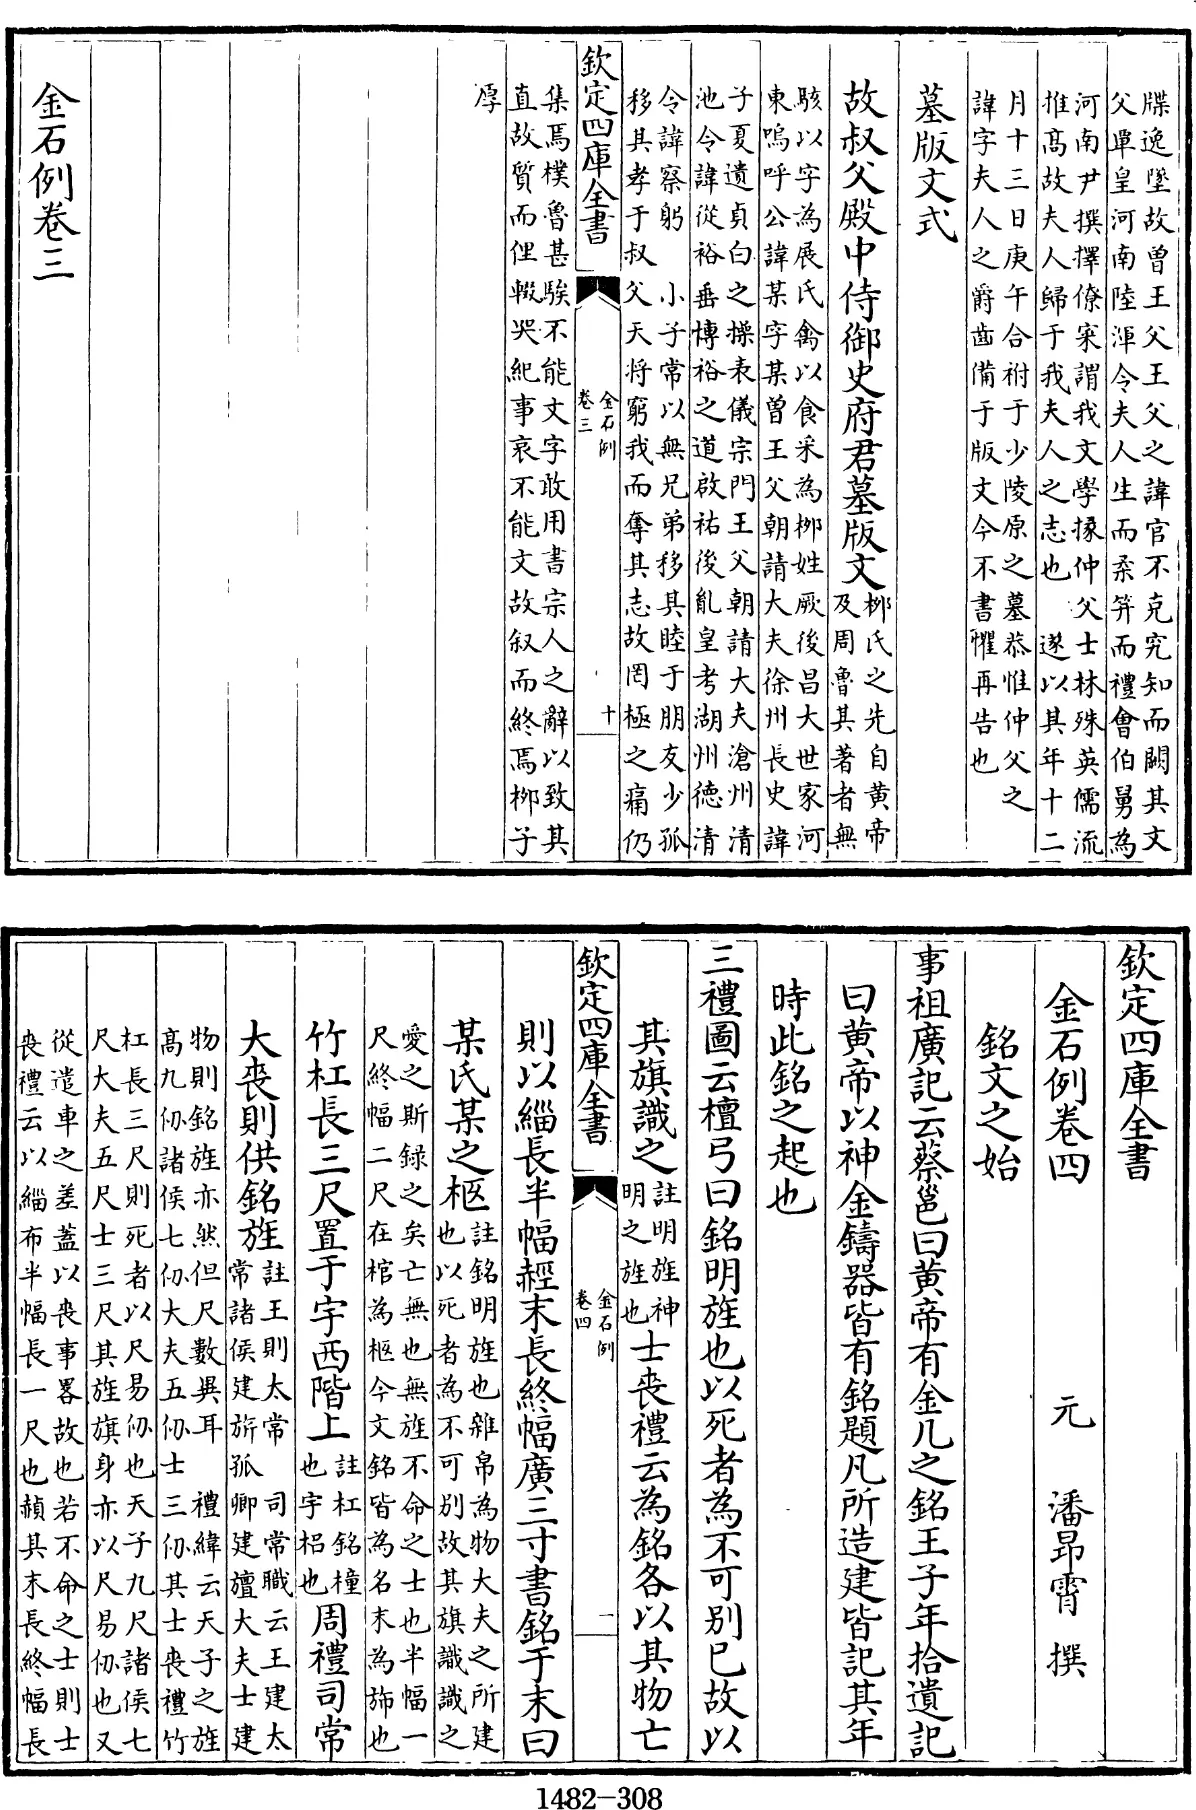 牒逸墜故曾王父王父之諱官不克究知而闕其文
父單皇河南陸渾令夫人生而柔筓而禮會伯舅為
河南尹撰擇僚寀謂我文學掾仲父士林殊英儒流
推髙故夫人歸于我夫人之志也　遂以其年十二
月十三日庚午合祔于少陵原之墓恭惟仲父之
諱字夫人之爵齒備于版文今不書懼再告也
墓版文式
故叔父殿中侍御史府君墓版文柳氏之先自黄帝
及周魯其著者無
駭以字為展氏禽以食采為柳姓厥後昌大世家河
東嗚呼公諱某字某曾王父朝請大夫徐州長史諱
子夏遺貞白之操表儀宗門王父朝請大夫滄州清
池令諱從裕垂博裕之道啟祐後胤皇考湖州德清
令諱察躬　小子常以無兄弟移其睦于朋友少孤
移其孝于叔父天将窮我而奪其志故罔極之痛仍
欽定四庫全書
金石例
卷三
十
集焉樸魯甚騃不能文字敢用書宗人之辭以致其
直故質而俚輟哭紀事哀不能文故叙而終焉柳子
厚
金石例卷三
欽定四庫全書
金石例卷四　元　潘昻霄　撰
銘文之始
事祖廣記云蔡邕曰黄帝有金几之銘王子年拾遺記
曰黄帝以神金鑄器皆有銘題凡所造建皆記其年
時此銘之起也
三禮圖云檀弓曰銘明旌也以死者為不可别已故以
其旗識之註明旌神
明之旌也
士喪禮云為銘各以其物亡
欽定四庫全書
金石例
卷四
一
則以緇長半幅經末長終幅廣三寸書銘于末曰
某氏某之柩註銘明旌也雜帛為物大夫之所建
也以死者為不可别故其旗識識之
愛之斯録之矣亡無也無旌不命之士也半幅一
尺終幅二尺在棺為柩今文銘皆為名末為斾也
竹杠長三尺置于宇西階上註杠銘橦
也宇梠也
周禮司常
大喪則供銘旌註王則太常　司常職云王建太
常諸侯建旂孤卿建旜大夫士建
物則銘旌亦然但尺數異耳　禮緯云天子之旌
髙九仞諸侯七仞大夫五仞士三仞其士喪禮竹
杠長三尺則死者以尺易仞也天子九尺諸侯七
尺大夫五尺士三尺其旌旗身亦以尺易仞也又
從遣車之差葢以喪事畧故也若不命之士則士
喪禮云以緇布半幅長一尺也赬其末長終幅長
1482—308